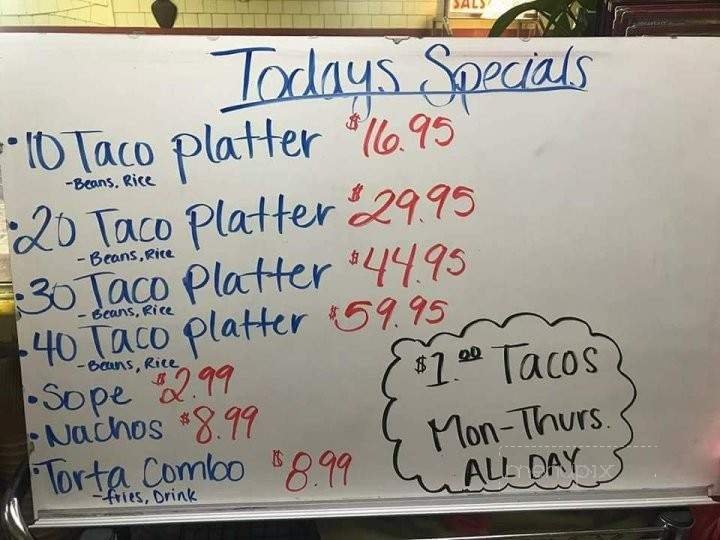 SALS
Todays Specials
•10 Taco platter $16.95
-Beans, Rice
•20 Taco platter $29.95
- Beans, Rice
•30 Taco platter $44.95
- Beans, Rice
•40 Taco platter $59.95
-Beans, Rice
•Sope $2.99
•Nachos $8.99
•Torta Combo $8.99
-fries, Drink
$1.00 Tacos
Mon-Thurs.
ALL DAY
menupix